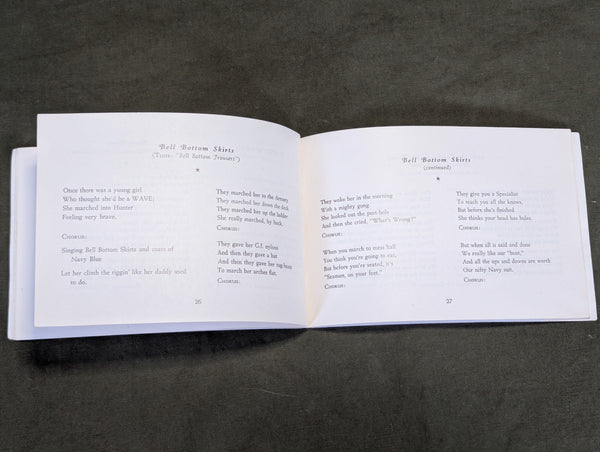 Bell Bottom Skirts
(Tune: "Bell Bottom Trousers")
*
Once there was a young girl
Who thought she'd be a WAVE;
She marched into Hunter
Feeling very brave.
CHORUS:
Singing Bell Bottom Skirts and coats of
Navy Blue
Let her climb the riggin' like her daddy used
to do.
They marched her to the Armory
They marched her down the deck
They marched her up the ladder
She really marched, by heck.
CHORUS:
They gave her G.I. nylons
And then they gave a hat
And then they gave her tug-boats
To march her arches flat.
CHORUS:
26
Bell Bottom Skirts
(continued)
*
They woke her in the morning
With a mighty gong
She looked out the port-hole
And then she cried, "What's Wrong?"
CHORUS:
When you march to mess hall
You think you're going to eat,
But before you're seated, it's
"Seamen, on your feet."
CHORUS:
They give you a Specialist
To teach you all the knows,
But before she's finished
She thinks your head has holes.
CHORUS:
But when all is said and done
We really like our "boot,"
And all the ups and downs are worth
Our nifty Navy suit.
CHORUS:
27